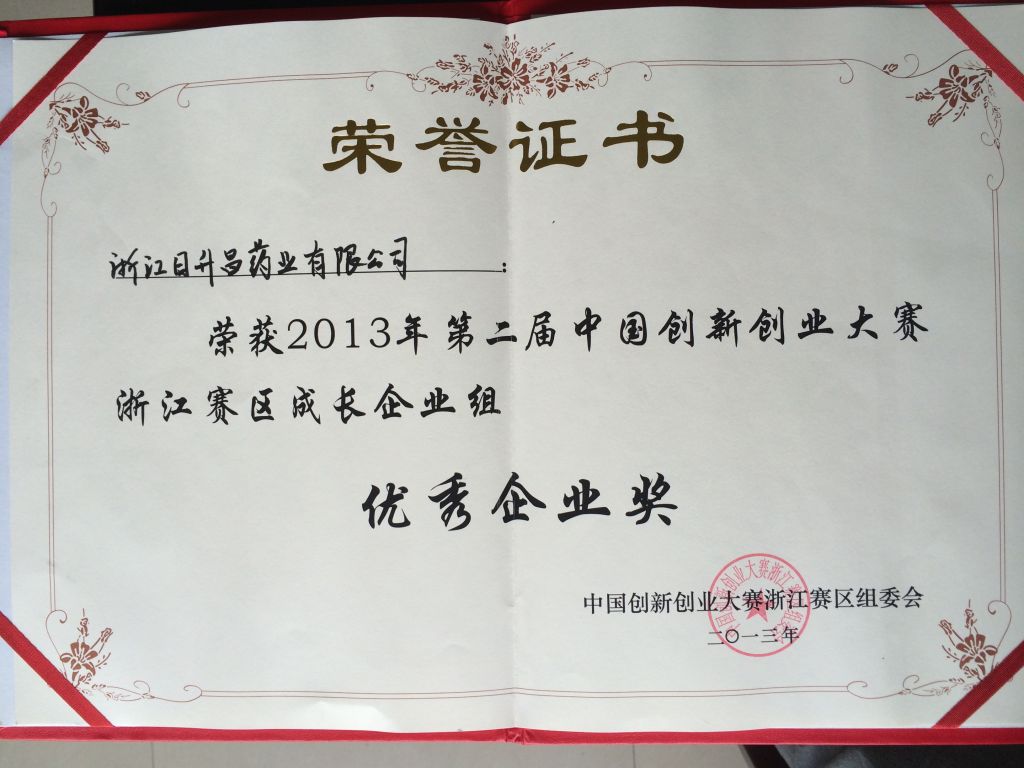 荣誉证书
浙江日升昌药业有限公司：
荣获2013年第二届中国创新创业大赛
浙江赛区成长企业组
优秀企业奖
中国创新创业大赛浙江赛区组委会
二〇一三年